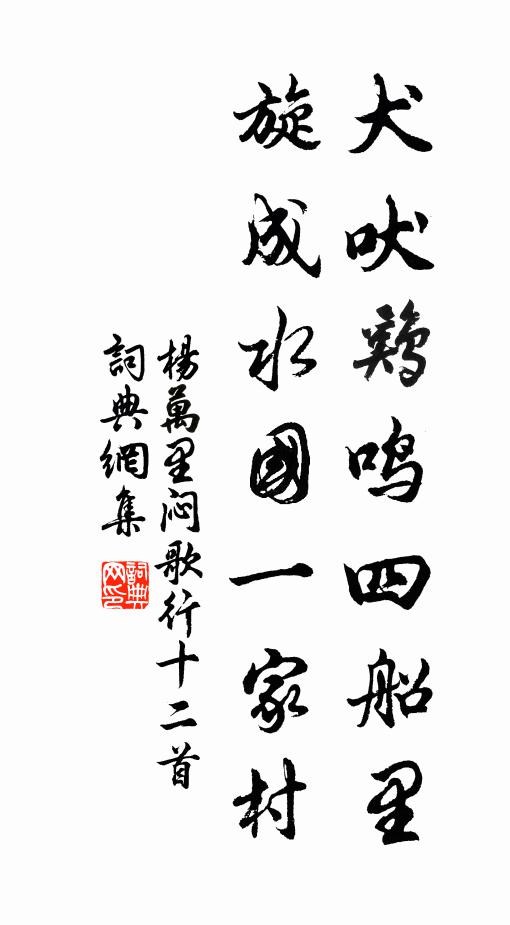 犬吠鷄鳴四船里
旋成水國一家村
楊萬里闷歌行十二首
詞典網集
詞典网印